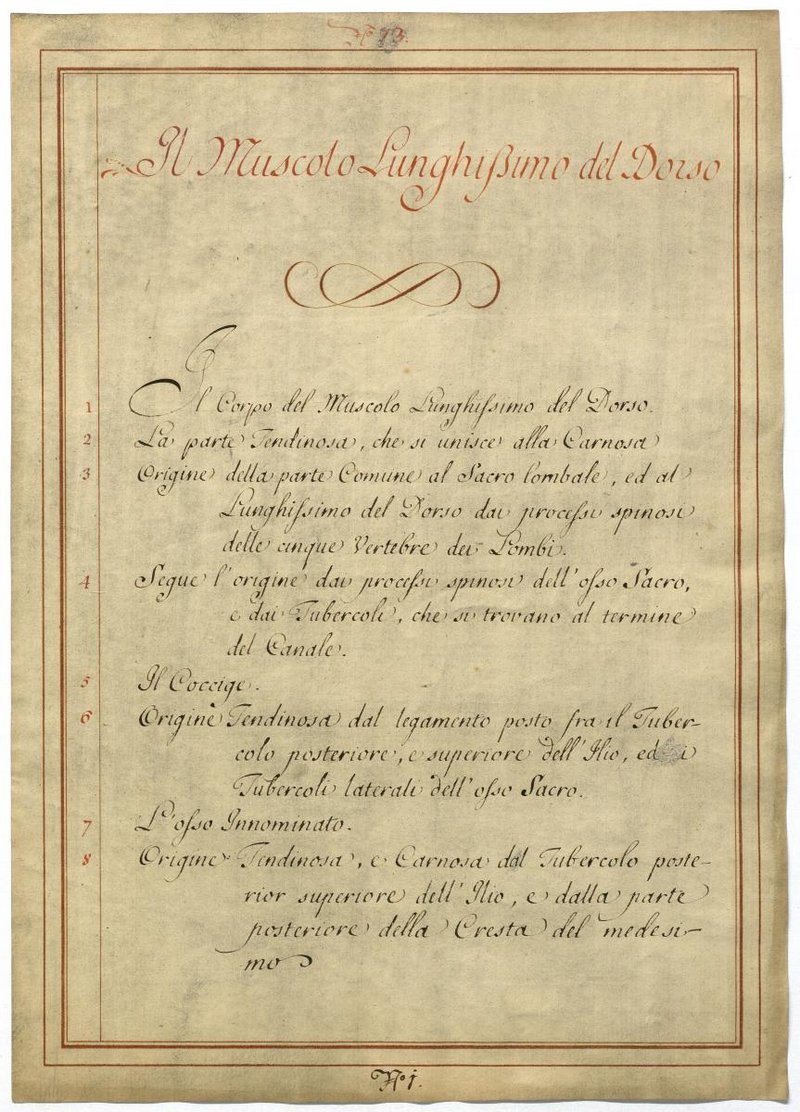 Nº 73.
Il Muscolo Lunghiſsimo del Dorso
1 Il Corpo del Muscolo Lunghiſsimo del Dorso.
2 La parte Tendinosa, che si unisce alla Carnosa
3 Origine della parte Comune al Sacro lombale, ed al
Lunghiſsimo del Dorso dai proceſsi spinosi
delle cinque Vertebre dei Lombi.
4 Segue l'origine dai proceſsi spinosi dell'oſso Sacro,
e dai Tubercoli, che si trovano al termine
del Canale.
5 Il Coccige.
6 Origine Tendinosa dal legamento posto fra il Tuber-
colo posteriore, e superiore dell'Ilio, ed i
Tubercoli laterali dell'oſso Sacro.
7 L'oſso Innominato.
8 Origine Tendinosa, e Carnosa dal Tubercolo poste-
rior superiore dell'Ilio, e dalla parte
posteriore della Cresta del medesi-
mo
Nº 1.